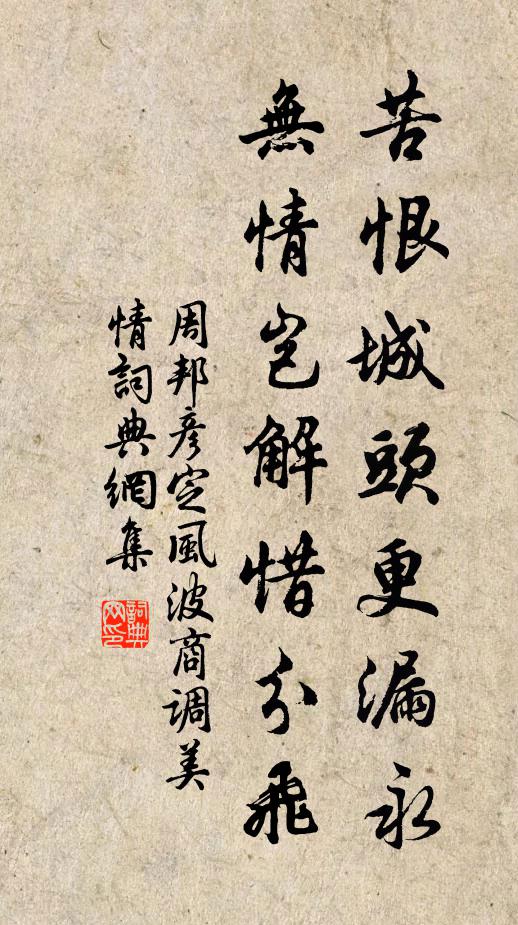 苦恨城頭更漏永
無情豈解惜分飛
周邦彥定風波商調美
情詞典網集
詞典網印